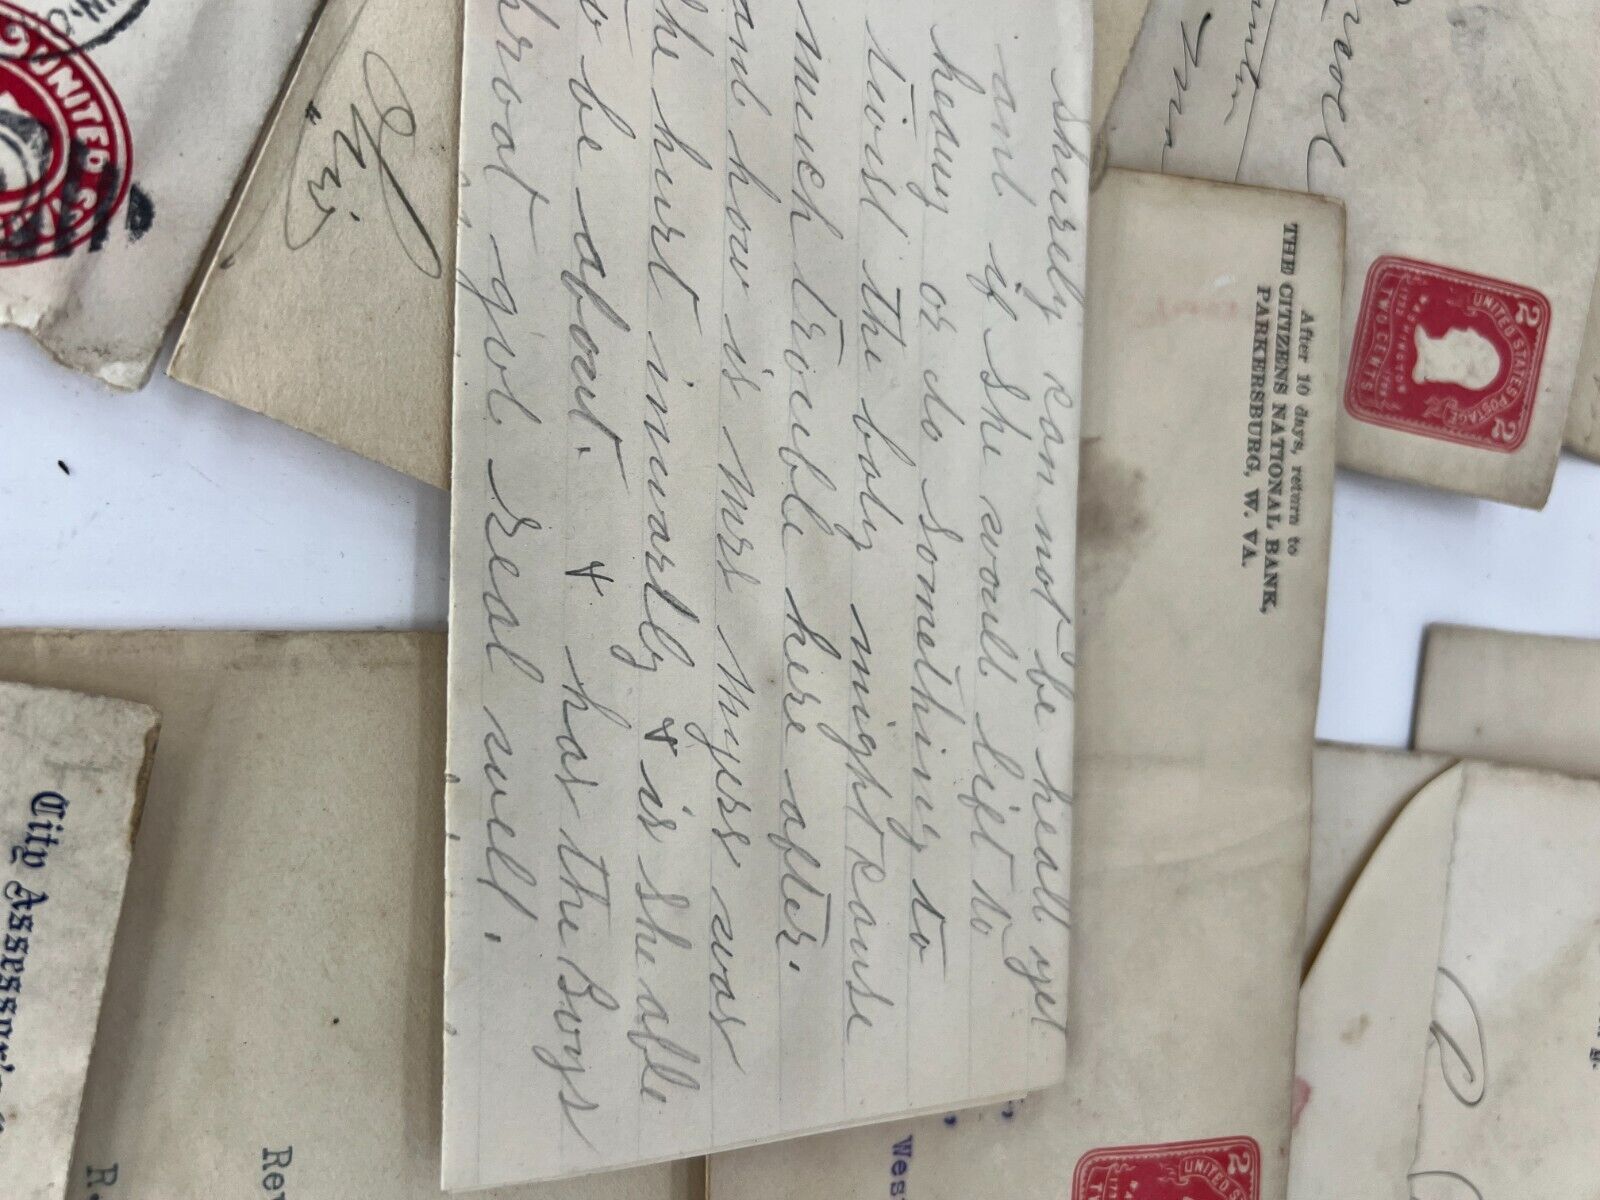 shurely can not be heall yet
and if she would lift to
heavy or do something to
twist the body might cause
much trouble here after.
and how is mrs myers was
he hurt inwardly & is she able
o be about. & has the Boys
hroat got real well.
After 10 days, return to
THE CITIZENS NATIONAL BANK,
PARKERSBURG, W. VA.
UNITED STATES POSTAGE
2 2
WASHINGTON
TWO CENTS
UNITED S
City Assessor's
Rev
R.
Wes
UNITED STATES
2